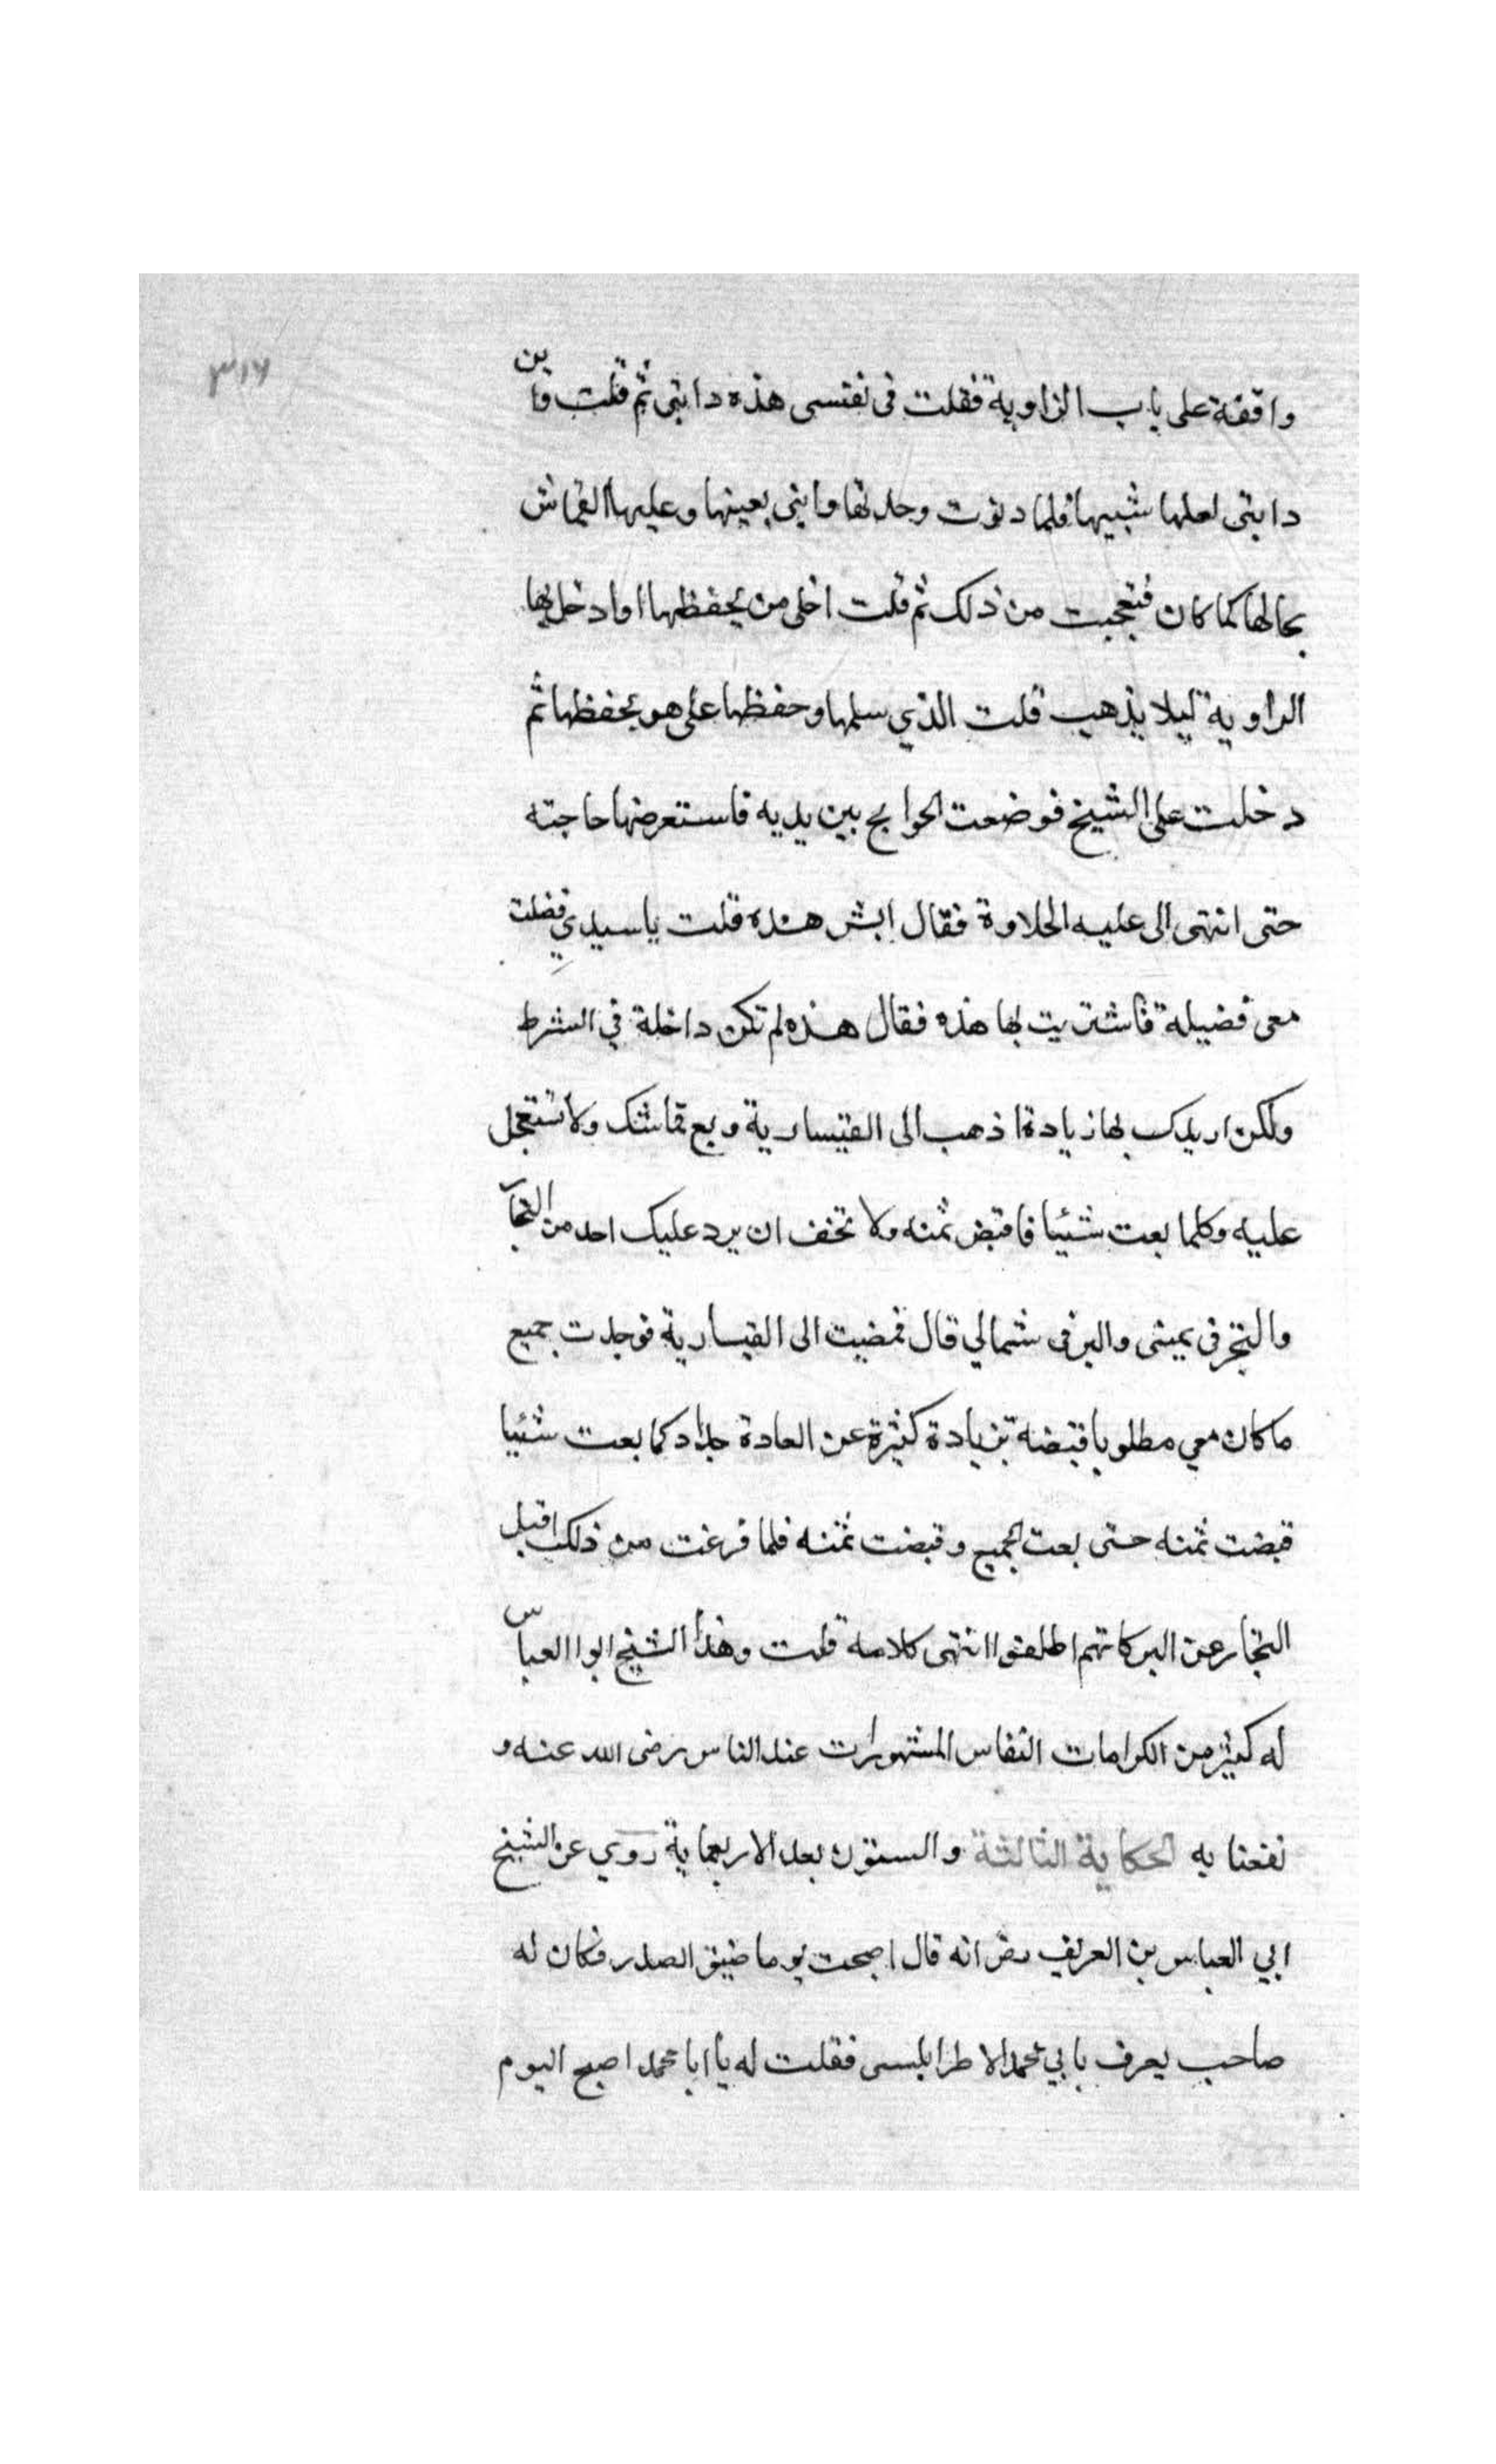 ٣١٦
واقفة على باب الزاوية فقلت فى نفسى هذه دابتى ثم قلت واين
دابتى لعلها شبيها فلما دنوت وجدتها دابتى بعينها وعليها القماش
بحالها كما كان فتعجبت من ذلك ثم قلت اخلى من يحفظها او ادخل بها
الزاوية ليلا يذهب قلت الذي سلمها وحفظها على هو يحفظها ثم
دخلت على الشيخ فوضعت الحوايج بين يديه فاستعرضها حاجته
حتى انتهى الى عليه الحلاوة فقال ايش هذه قلت ياسيدي فضلت
معى فضيلة فاشتريت بها هذه فقال هذه لم تكن داخلة في الشرط
ولكن ازيدك بها زيادة اذهب الى القيسارية وبع قماشك ولا تستعجل
عليه وكلما بعت شئيا فاقبض ثمنه ولا تخف ان يرد عليك احد من التجار
والبحر فى يمينى والبر فى شمالي قال فمضيت الى القيسارية فوجدت جميع
ما كان معي مطلوبا قبضة بزيادة كثيرة عن العادة جدا دكما بعت شئيا
قبضت ثمنه حتى بعت الجميع وقبضت ثمنه فلما فرغت من ذلك اقبل
التجار عن البر كانهم اطلقوا انتهى كلامه قلت وهذا الشيخ ابوا العباس
له كثير من الكرامات النفاس المشتهورات عند الناس رضى الله عنه و
نفعنا به الحكاية الثالثة والستون بعد الاربعماية روي عن الشيخ
ابي العباس بن العريف رض انه قال اصبحت يوما ضيق الصدر فكان له
صاحب يعرف بابي محمد الاطرابلسى فقلت له يا ابا محمد اصبح اليوم